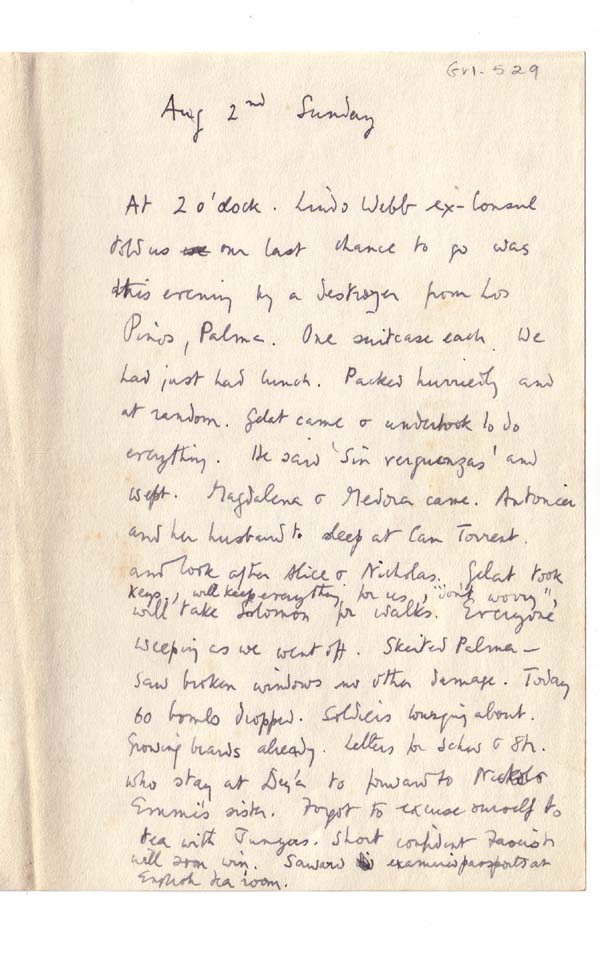 Gr1-529
Aug 2nd Sunday
At 2 o'clock. Lindo Webb ex-Consul
told us our last chance to go was
this evening by a destroyer from Los
Pinos, Palma. One suitcase each. We
had just had lunch. Packed hurriedly and
at random. Gelat came & undertook to do
erything. He said 'Sin verguenzas' and
wept. Magdalena & Medora came.
and her husband to sleep at Can Torrent.
and look after Alice & Nicholas. Gelat took
keys, will keep everything for us, "don't worry",
will take Solomon for walks. Everyone
weeping as we went off. Skirted Palma –
saw broken windows no other damage. Today
60 bombs dropped. Soldiers lounging about.
Growing beards already. Letters for Schw & Str.
who stay at Deyá to forward to
sister. Forgot to excuse ourself to
tea with Short confident Fascists
will soon win. Saward examines passports at
English tea room.